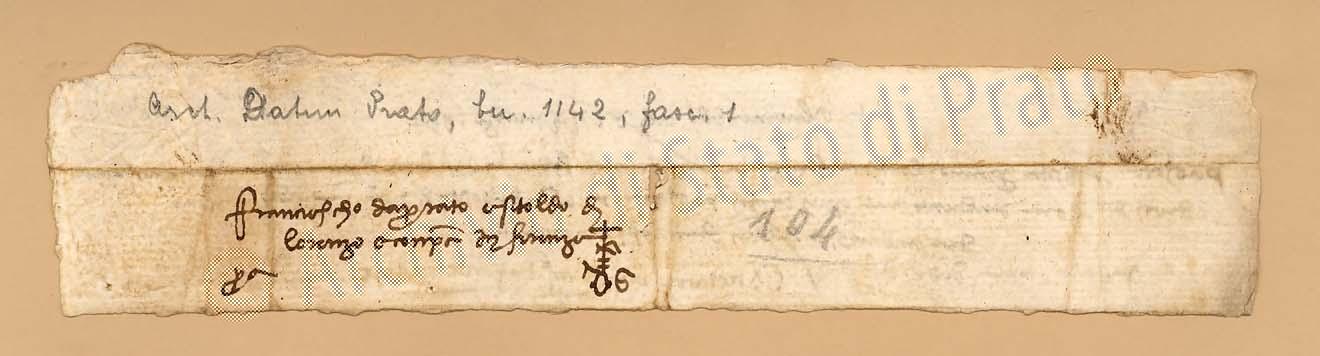 Arch. Datini Prato, bu. 1142, fasc. 1
© Archivio di Stato di Prato
Franciescho da prato e stoldo di
lorenzo e conp di firenze
104